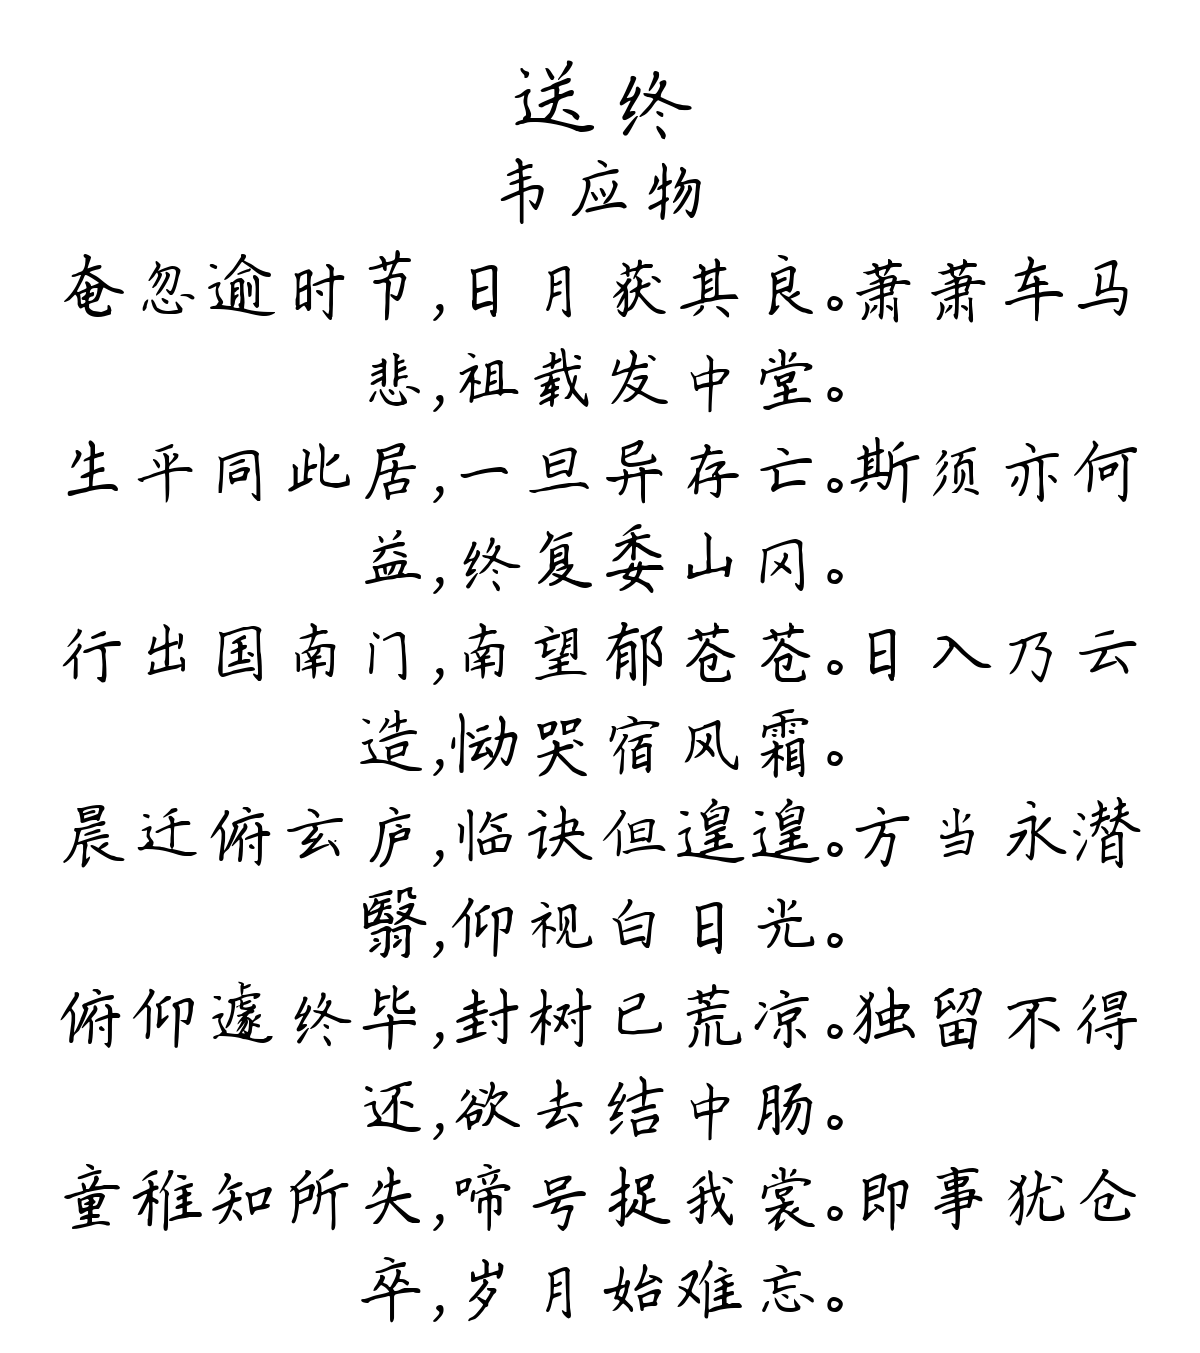 送终
韦应物
奄忽逾时节,日月获其良。萧萧车马
悲,祖载发中堂。
生平同此居,一旦异存亡。斯须亦何
益,终复委山冈。
行出国南门,南望郁苍苍。日入乃云
造,恸哭宿风霜。
晨迁俯玄庐,临诀但遑遑。方当永潜
翳,仰视白日光。
俯仰遽终毕,封树已荒凉。独留不得
还,欲去结中肠。
童稚知所失,啼号捉我裳。即事犹仓
卒,岁月始难忘。